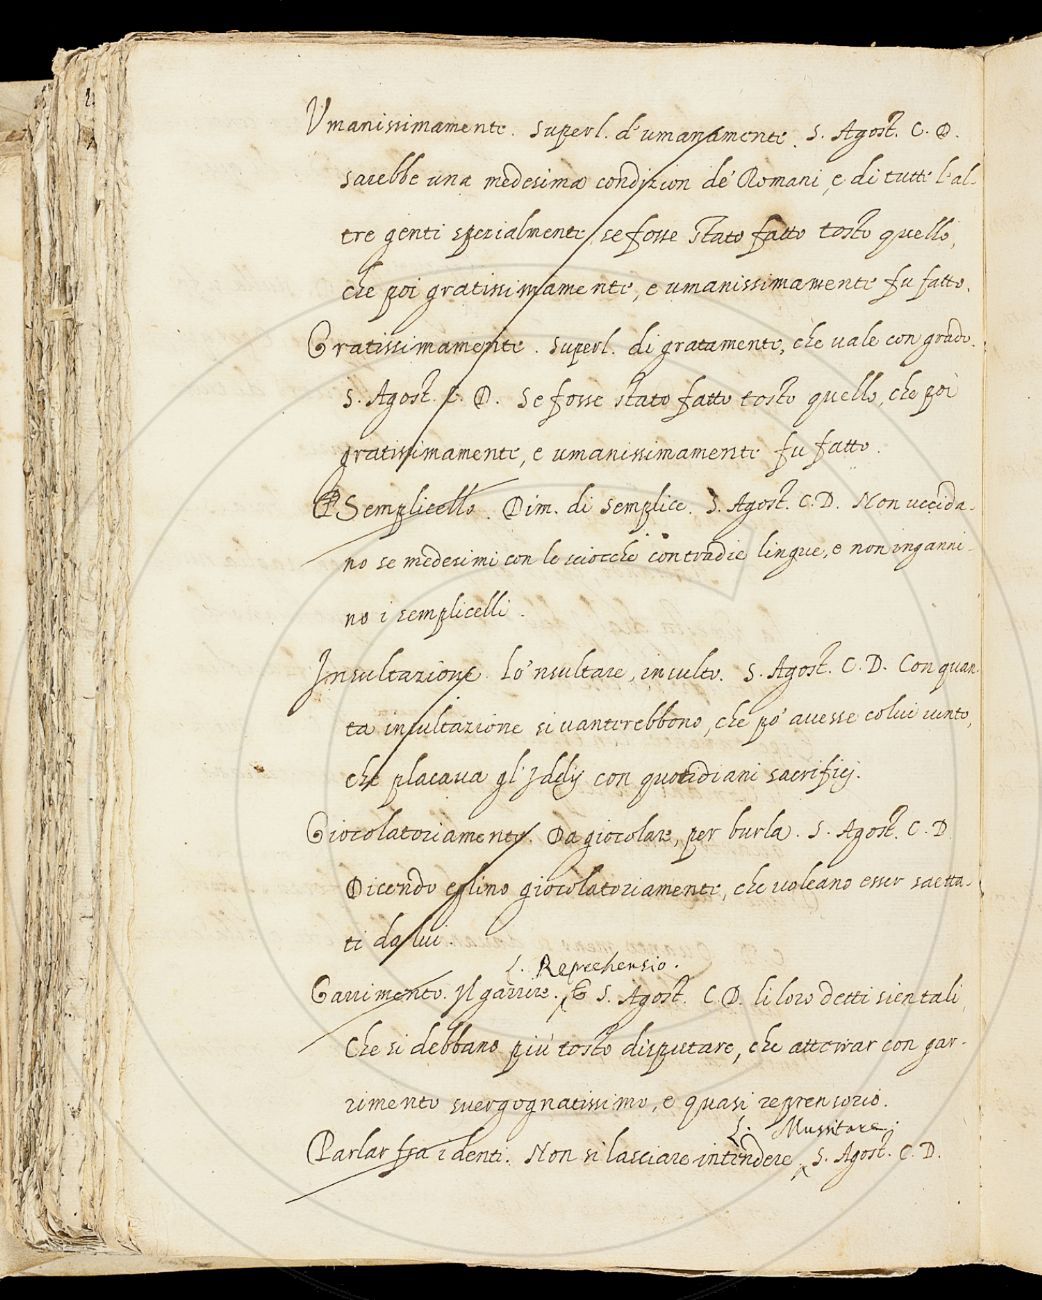 Umanissimamente. Superl. d'umanamente. S. Agost. C. D.
sarebbe una medesima condizion de' Romani, e di tutte l'al-
tre genti spezialmente, se fosse stato fatto tosto quello,
che poi gratissimamente, e umanissimamente fu fatto.
Gratissimamente. Superl. di gratamente, che vale con grado.
S. Agost. C. D. Se fosse stato fatto tosto quello, che poi
gratissimamente, e umanissimamente fu fatto.
Semplicello. Dim. di semplice. S. Agost. C. D. Non uccida-
no se medesimi con le sciocche contradie lingue, e non inganni-
no i semplicelli.
Insultazione. Lo 'nsultare, insulto. S. Agost. C. D. Con quan-
ta insultazione si vanterebbono, che po' avesse colui vinto,
che placava gl'Iddij con quotidiani sacrificj.
Giocolatoriamente. Da giocolare, per burla. S. Agost. C. D.
Dicendo eglino giocolatoriamente, che voleano esser saetta-
ti da lui.
L. Reprehensio.
Garrimento. Il garrire. S. Agost. C. D. li loro detti sien tali,
Che si debbano più tosto disputare, che atterrar con gar-
rimento svergognatissimo, e quasi reprensorio.
L. Mussitare.
Parlar fra i denti. Non si lasciare intendere. S. Agost. C. D.